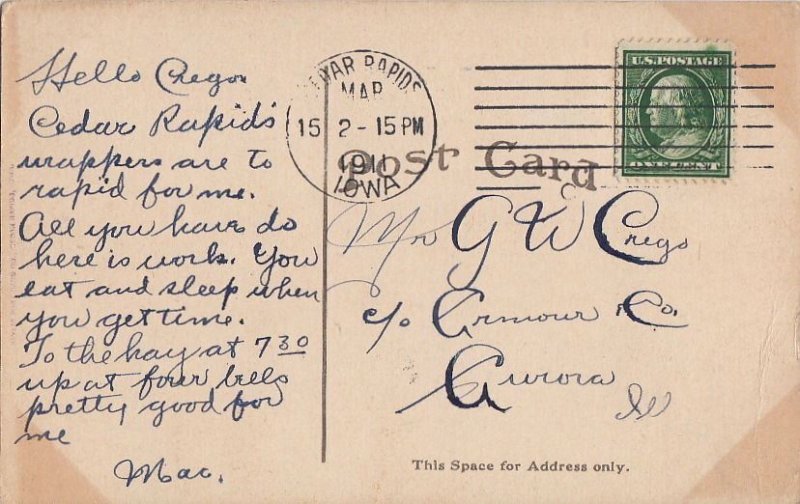 Hello Crego
Cedar Rapids
wrappers are to
rapid for me.
All you have do
here is work. You
eat and sleep when
you get time.
To the hay at 7 30
up at four bells
pretty good for
me
Mac.
DAR RAPIDS
MAR
15 2-15 PM
1911
IOWA
U.S. POSTAGE
ONE CENT
Post Card
Mr G W Crego
c/o Armour & Co.
Aurora
Ill
This Space for Address only.